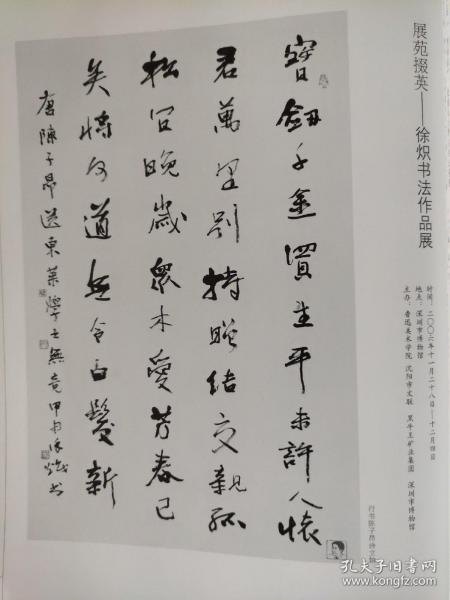 展苑掇英——徐炽书法作品展
时间：二〇〇六年十一月二十八日—十二月四日
地点：深圳市博物馆
主办：鲁迅美术学院 沈阳市文联 黑牛王矿业集团 深圳市博物馆
行书陈子昂诗立轴
寶劍千金買生平未許人懷
君萬里別持贈結交親孤
松宜晚歲眾木愛芳春已
矣將何道無令白髮新
唐陳子昂送東萊學士無竞 甲申徐炽书
孔夫子旧书网